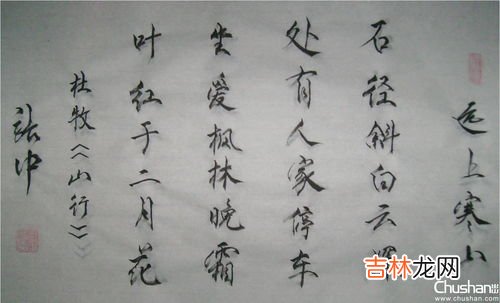 远上寒山
石径斜白云
处有人家停车
坐爱枫林晚霜
叶红于二月花
杜牧《山行》
吉林龙网